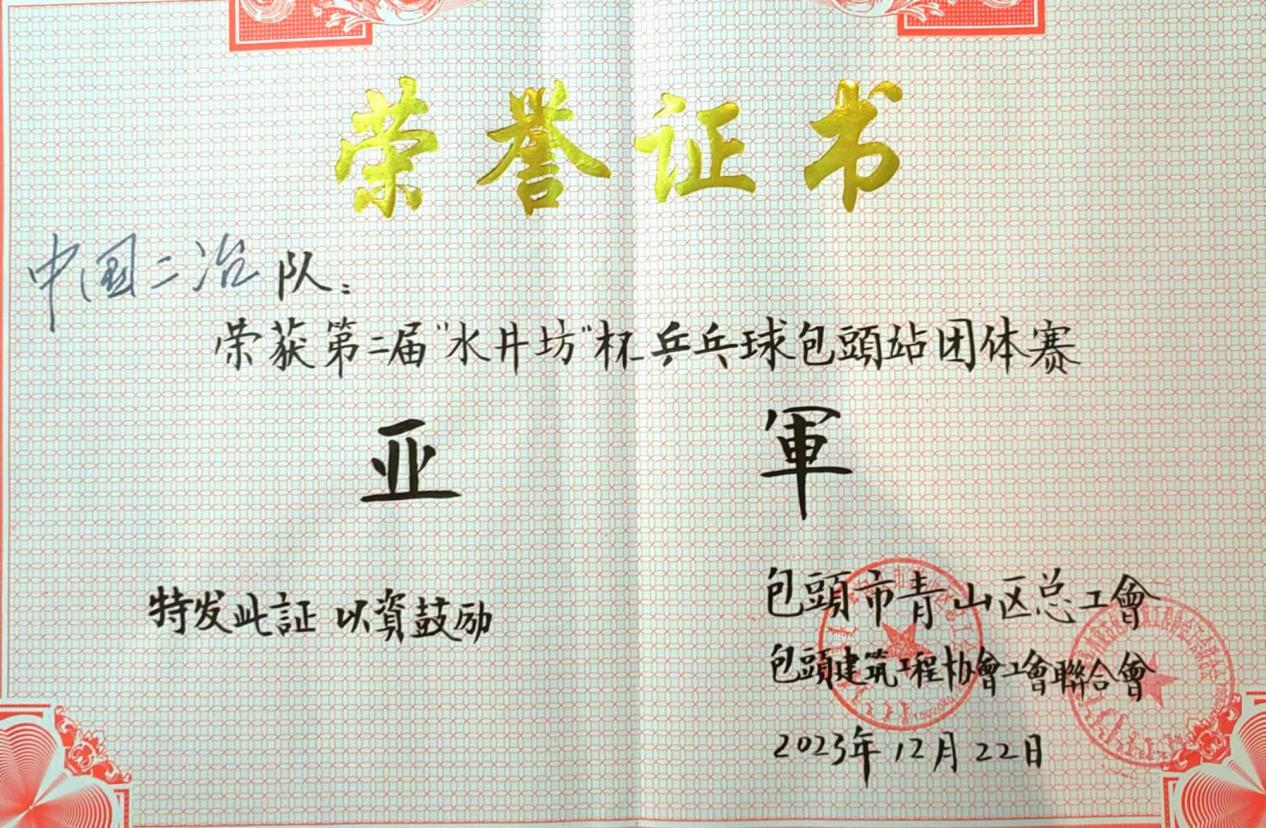 荣誉证书
中国二冶队：
荣获第二届"水井坊"杯乒乓球包頭站团体赛
亚軍
特发此証 以資鼓励
包頭市青山区总工會
包頭建筑工程协會工會聯合會
2023年12月22日